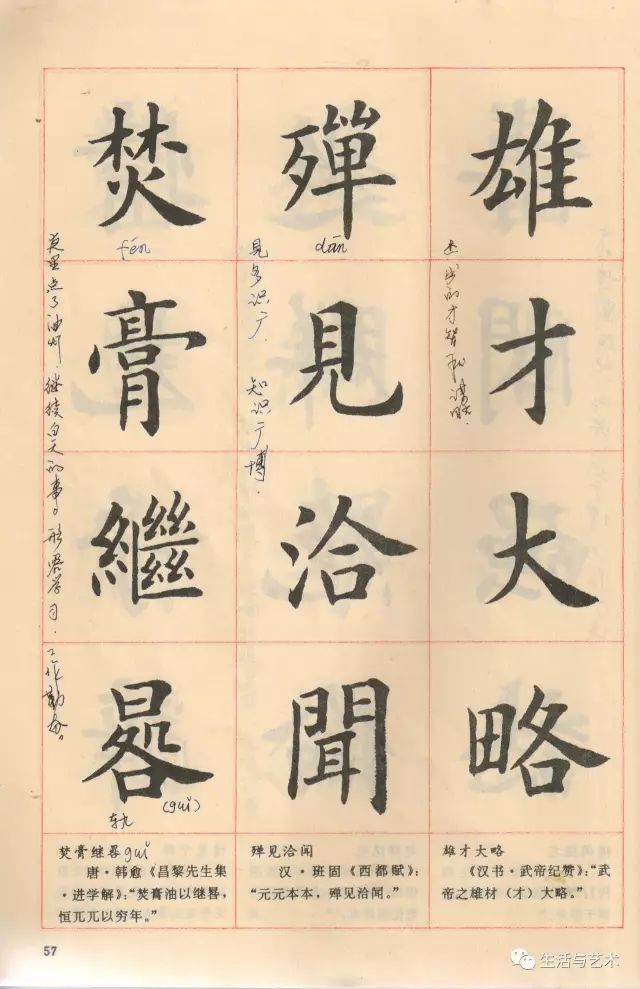 雄才大略
殫見洽聞
焚膏繼晷
fén
dān
见多识广.
知识广博.
夜里点了油灯,继续白天的事。形容学习.工作勤奋。
轨
(guǐ)
焚膏继晷guǐ
唐·韩愈《昌黎先生集
·进学解》:“焚膏油以继晷,
恒兀兀以穷年。”
殚见洽闻
汉·班固《西都赋》:
“元元本本,殚见洽闻。”
雄才大略
《汉书·武帝纪赞》:“武
帝之雄材(才)大略。”
57
生活与艺术